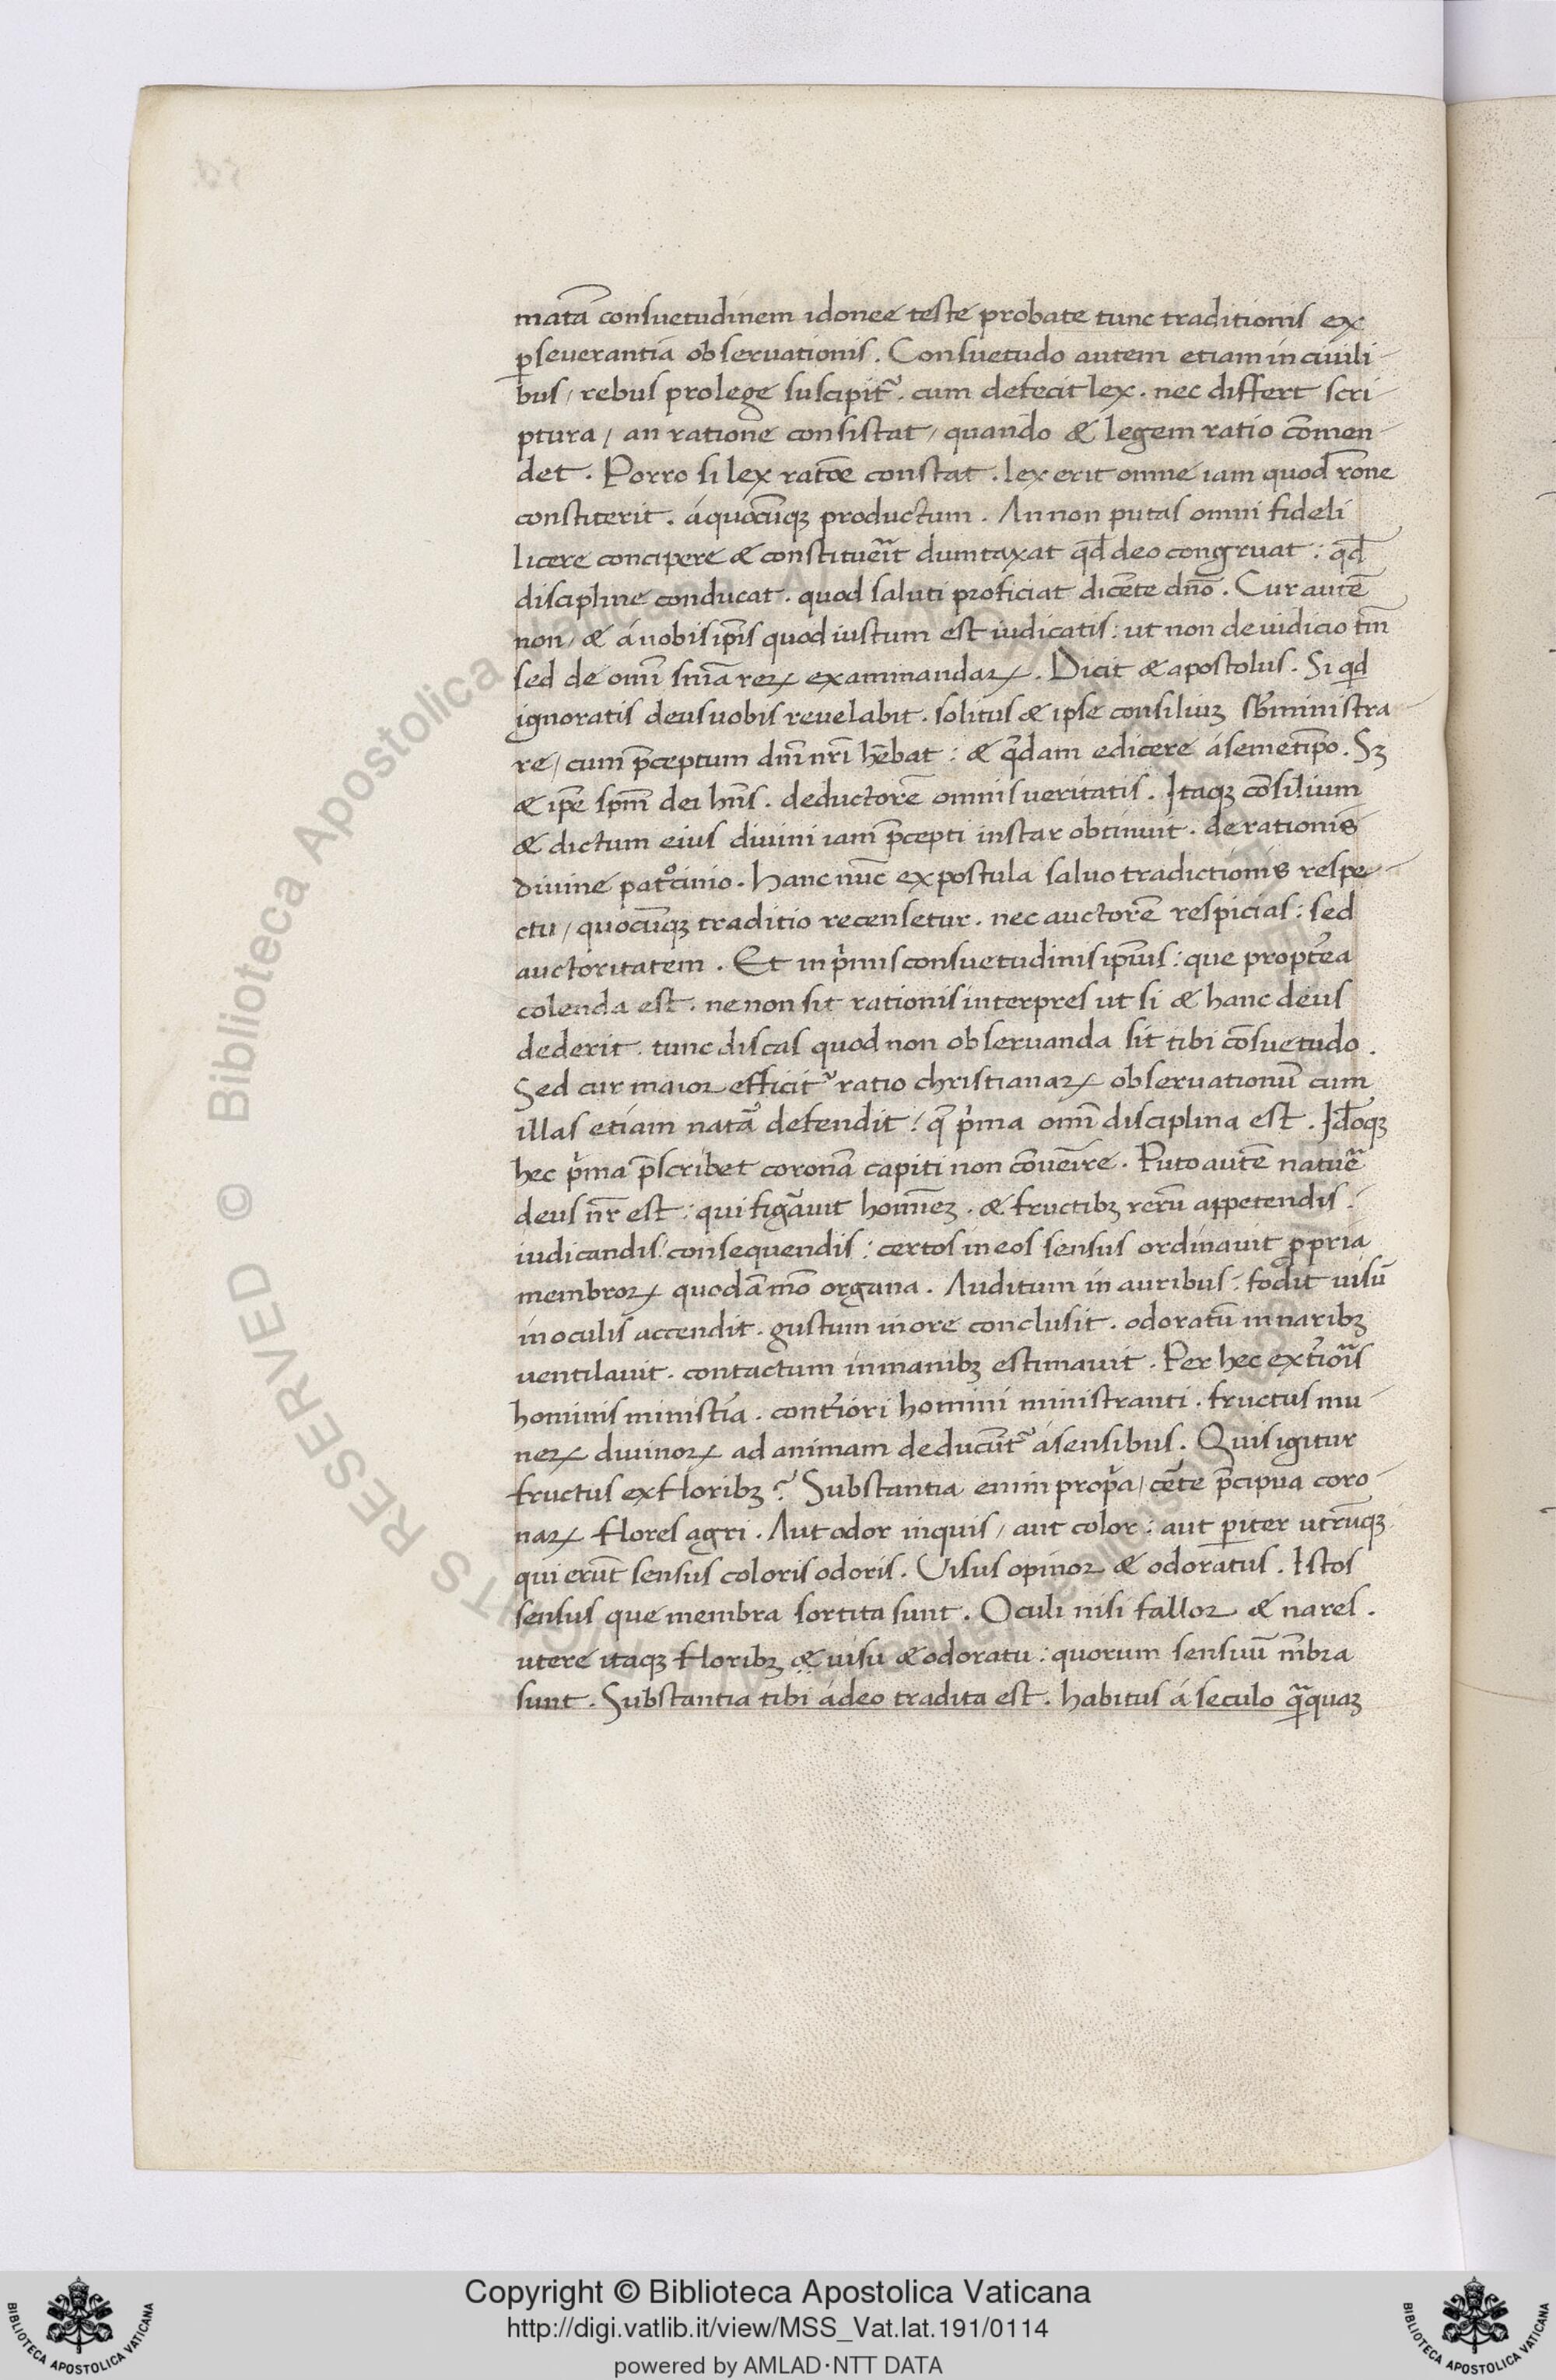 matā consuetudinem idonee teste probate tunc traditionis ex
p̱seuerantia obseruationis. Consuetudo autem etiam in ciuili-
bus/ rebus pro lege suscipit᷑. cum defecit lex. nec differt scri-
ptura/ an ratione consistat/ quando & legem ratio cōmen-
det. Porro si lex ratōe constat. lex erit omne iam quod rōne
constiterit. á quocūqꝫ productum. An non putas omni fideli
licere concipere & constitue᷑it dumtaxat qđ deo congruat: qđ
discipline conducat. quod saluti proficiat dicēte dn̄o. Cur autē
non/ & á uobis ip̄is quod iustum est iudicatis: ut non de iudicio tm̄
sed de omī sn̄ia reꝝ examinandaꝝ. Dicit & apostolus. Si qd
ignoratis deus uobis reuelabit. solitus & ipse consiliuꝫ sb̄ministra
re/ cum p̄ceptum dn̄i nr̄i hēbat: & q̓dam edicere á semetip̄o. Sꝫ
& ip̄e spm̄ dei hn̄s. deductorē omnis ueritatis. Itaqꝫ cōsilium
& dictum eius diuini iam p̄cepti instar obtinuit. de rationis
diuine patͦcinio. Hanc nūc expostula saluo tradictionis respe-
ctu/ quocūqꝫ traditio recensetur. nec auctorē respicias: sed
auctoritatem. Et in p̓mis consuetudinis ip̄ius: que propt᷑ea
colenda est. ne non sit rationis interpres ut si & hanc deus
dederit. tunc discas quod non obseruanda sit tibi cōsuetudo.
Sed cur maior efficit᷑ ratio christianaꝝ obseruationū cum
illas etiam natā᷑ defendit? q̄ p̓ma omī disciplina est. Id̄oqꝫ
hec p̓ma p̄scribet coronā capiti non cōuēire. Puto autē natue᷑
deus nr̄ est: qui figa᷑uit homēꝫ. & fructibꝫ rerū appetendis.
iudicandis: consequendis: certos in eos sensus ordinauit ꝓpria
membroꝝ quodāmō organa. Auditum in auribus: fodit uisū
in oculis accendit. gustum in ore conclusit. odoratū in naribꝫ
uentilauit. contactum in manibꝫ estimauit. Per hec ext᷑io᷑is
hominis minist᷑ia. cont᷑iori homini ministranti. fructus mu-
neꝝ diuinoꝝ ad animam deducūt᷑ á sensibus. Quis igitur
fructus ex floribꝫ? Substantia enim prop̓a/ ce᷑te p̄cipua coro-
naꝝ flores agri. Aut odor inquis/ aut color: aut p̱iter utrūqꝫ
qui erūt sensus coloris odoris. Uisus opinor & odoratus. Istos
sensus que membra sortita sunt. Oculi nisi fallor & nares.
utere itaqꝫ floribꝫ & uisu & odoratu: quorum sensuū m̄bra
sunt. Substantia tibi á deo tradita est. habitus á seculo q̱᷑quaꝫ
© Biblioteca Apostolica Vaticana
RIGHTS RESERVED
Copyright © Biblioteca Apostolica Vaticana
http://digi.vatlib.it/view/MSS_Vat.lat.191/0114
powered by AMLAD·NTT DATA
BIBLIOTECA APOSTOLICA VATICANA
BIBLIOTECA APOSTOLICA VATICANA